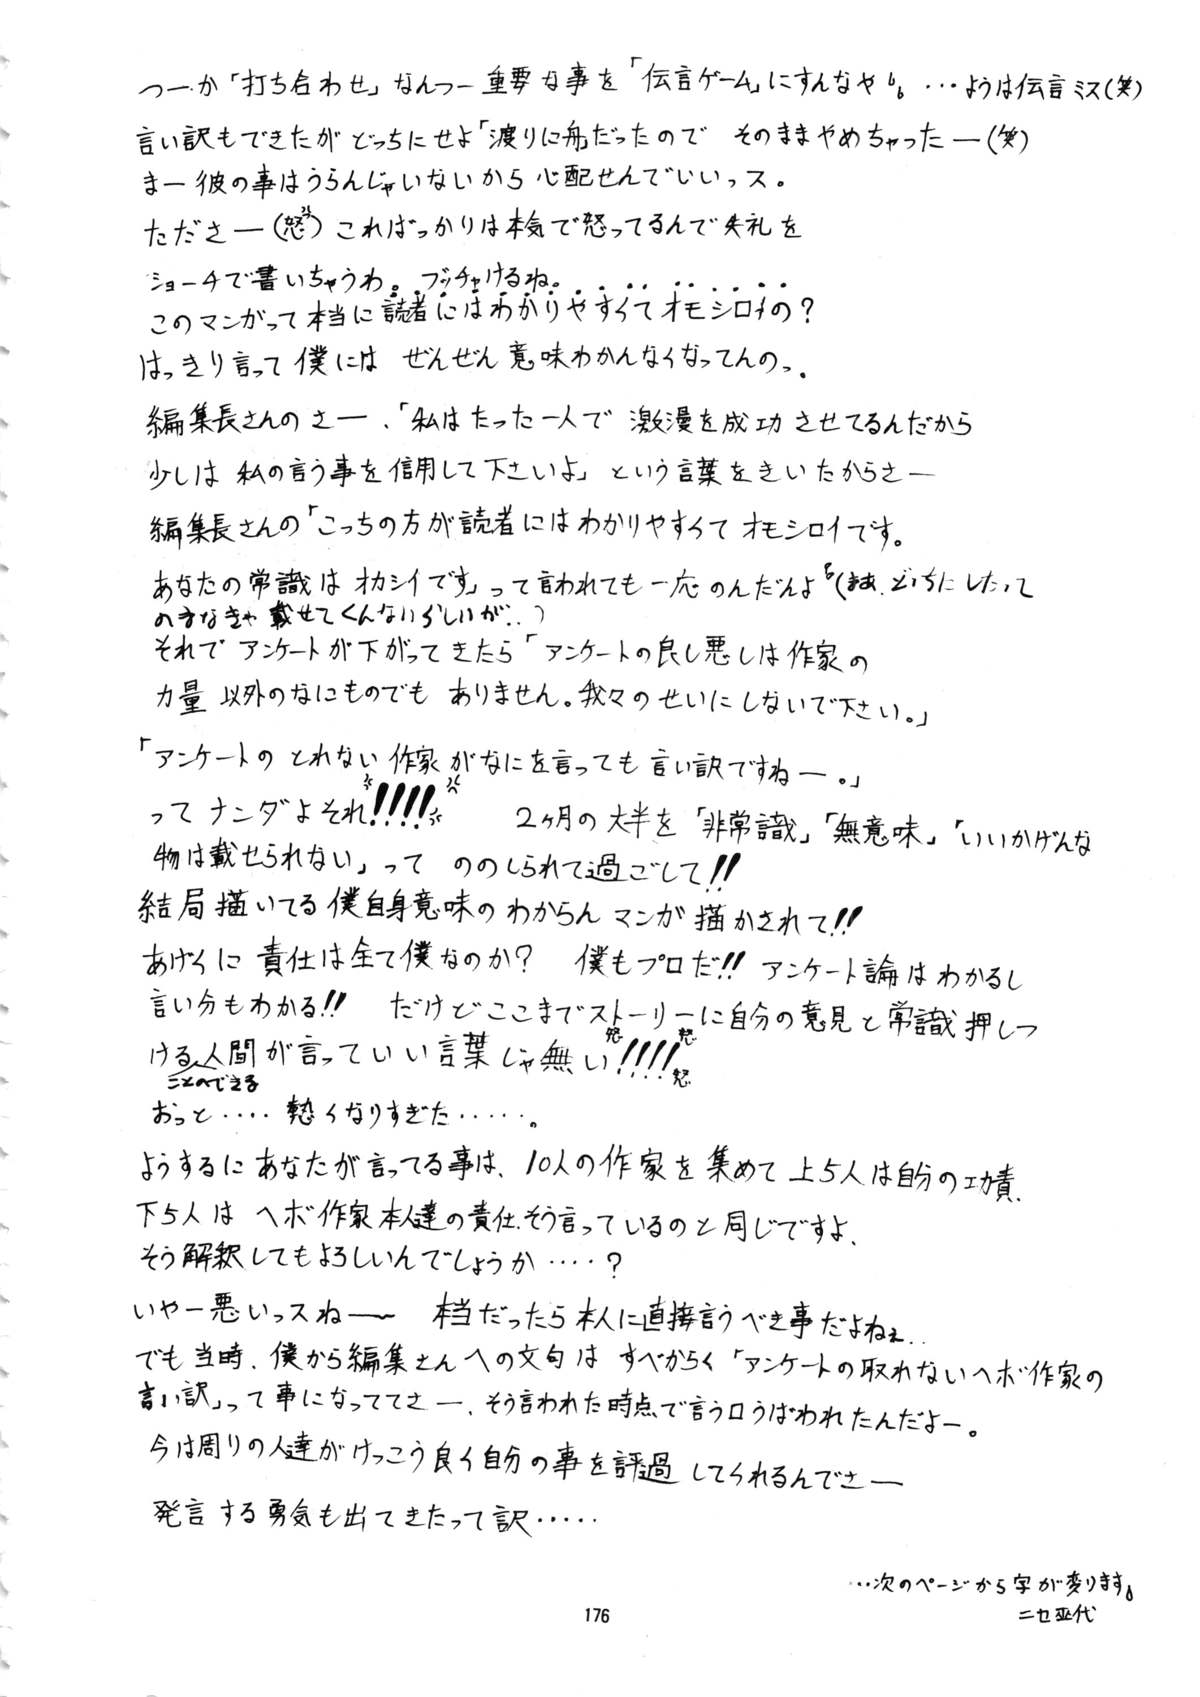 つーか「打ち合わせ」なんつー重要な事を「伝言ゲーム」にすんなや。…ようは伝言ミス(笑)
言い訳もできたがどっちにせよ「渡りに舟」だったので そのままやめちゃったー(笑)
まー彼の事はうらんじゃいないから心配せんでいいっス。
たださー(怒)こればっかりは本気で怒ってるんで失礼を
ショーチで書いちゃうわ。ブッチャけるね。
このマンガって本当に読者にはわかりやすくてオモシロイの?
はっきり言って僕には ぜんぜん意味わかんなくなってんのっ.
編集長さんのさー、「私はたった一人で 激漫を成功させてるんだから
少しは 私の言う事を信用して下さいよ」という言葉をきいたからさー
編集長さんの「こっちの方が読者にはわかりやすくてオモシロイです。
あなたの常識はオカシイです」って言われても一応のんだんよ(まあ、どっちにしたって
のまなきゃ載せてくんないらしいが‥)
それでアンケートが下がってきたら「アンケートの良し悪しは作家の
力量以外のなにものでもありません。我々のせいにしないで下さい。」
「アンケートのとれない作家がなにを言っても言い訳ですねー。」
ってナンダよそれ!!!! 2ヶ月の大半を「非常識」「無意味」「いいかげんな
物は載せられない」って ののしられて過ごして!!
結局描いてる僕自身意味のわからんマンガ描かされて!!
あげくに責任は全て僕なのか? 僕もプロだ!! アンケート論はわかるし
言い分もわかる!! だけどここまでストーリーに自分の意見と常識押しつ
ける人間が言っていい言葉じゃ無い!!!! 怒 怒 怒
ことのできる
おっと‥‥熱くなりすぎた‥‥‥。
ようするにあなたが言ってる事は、10人の作家を集めて上5人は自分の功績、
下5人はヘボ作家本人達の責任、そう言っているのと同じですよ、
そう解釈してもよろしいんでしょうか‥‥?
いやー悪いっスねー〜 本当だったら本人に直接言うべき事だよねぇ‥
でも当時、僕から編集さんへの文句は すべからく「アンケートの取れないヘボ作家の
言い訳」って事になっててさー、そう言われた時点で言う口うばわれたんだよー。
今は周りの人達がけっこう良く自分の事を評過してくれるんでさー
発言する勇気も出てきたって訳‥‥‥
…次のページから字が変ります。
ニセ巫代
176